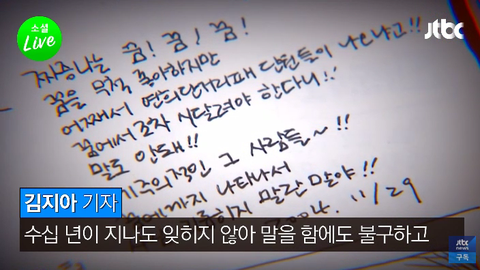 소셜
Live
jtbc
짜증나는 꿈! 꿈! 꿈!
꿈을 무척 좋아하지만
어째서 딴의단거리패 단원들이 나오냐고!!
꿈에서조차 시달려야 한다니!!
말도 안돼!!
그 사람들~!!
까지 나타나서
말란 말야!!
2004. 11/29
김지아 기자
수십 년이 지나도 잊히지 않아 말을 함에도 불구하고
jtbc
news
구독